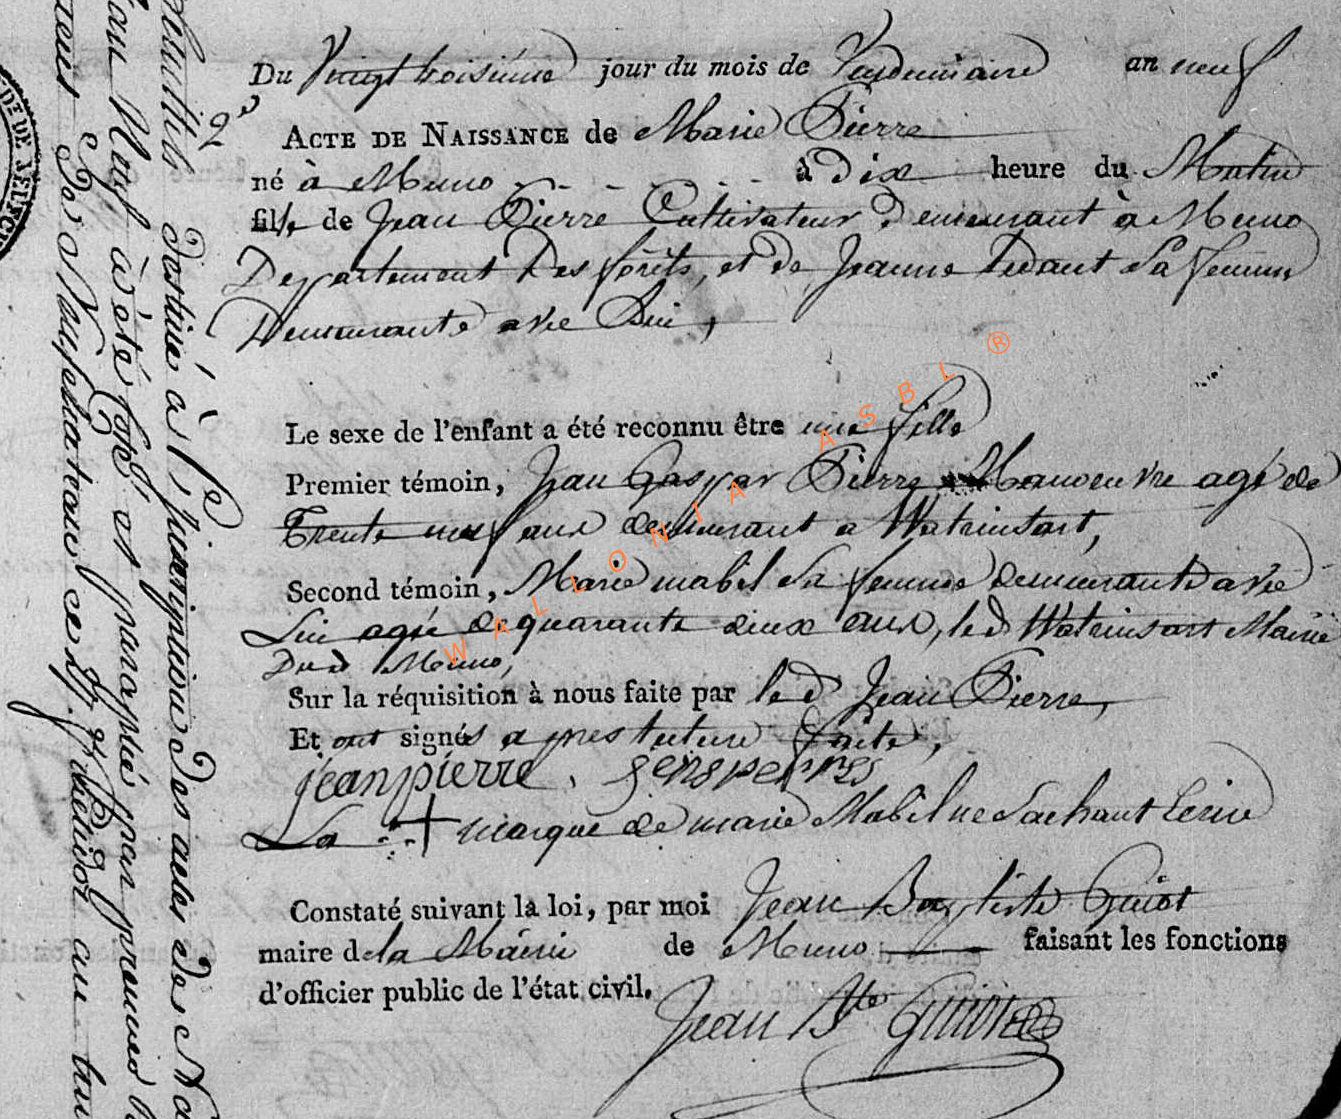 Du Vingt troisieme jour du mois de Vendemiaire an neuf
2e
ACTE DE NAISSANCE de Marie Pierre
né à Muno à Dix heure du Matin
fille de Jean Pierre Cultivateur Demeurant à Muno
Departement Des forêts, et de Jeanne Sa femme
Demeurante avec Lui,
Le sexe de l'enfant a été reconnu être une fille
Premier témoin, Jean Gaspar Pierre Manoeuvre agé de
Trente neuf ans demeurant a Watrinsart,
Second témoin, Marie mabil Sa femme demeurante avec
Lui agée de quarante deux ans, led Watrinsart Mairie
Dud Muno,
Sur la réquisition à nous faite par led Jean Pierre,
Et ont signés apres lecture faite,
jean pierre
La + marque de marie Mabil ne Sachant Ecrire
Constaté suivant la loi, par moi Jean Baptiste Guiot
maire de la Mairie de Muno faisant les fonctions
d'officier public de l'état civil.
Jean Bte Guiot
WALLONIA ASBL ®
destiné à l'Inscription Des actes de
neuf à été coté et paraphé par premier
De Neufchateau ce
DE DE NEUFCH